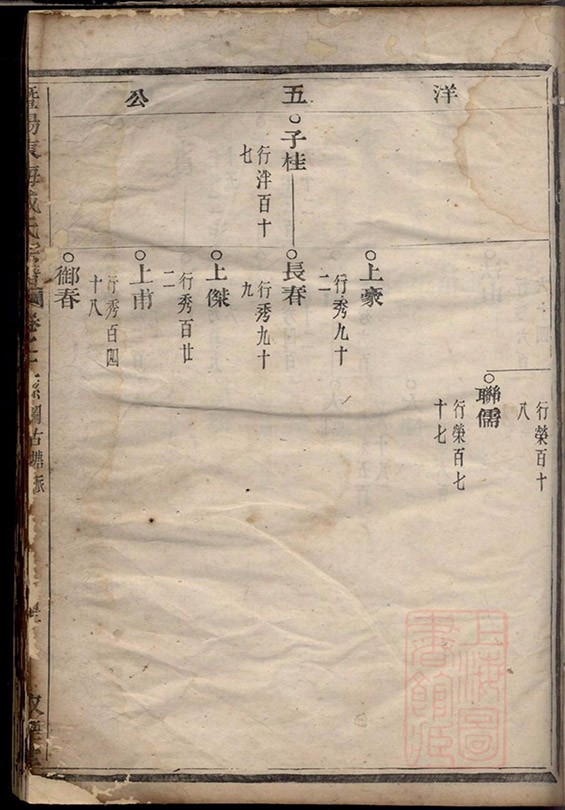 洋五公
行榮百十
八
聯儒
行榮百七
十七
子桂
行泮百十
七
上豪
行秀九十
二
長春
行秀九十
九
上傑
行秀百廿
二
上甫
行秀百四
十八
御春
暨陽東海戚氏宗譜
古塘派
上海圖書館藏